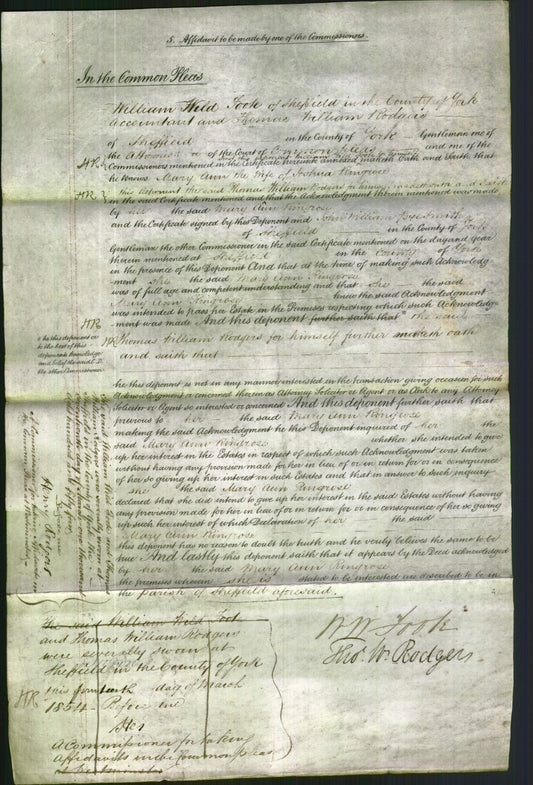 5. Affidavit to be made by one of the Commissioners.
In the Common Pleas
William Wild Took of Sheffield in the County of York
Accountant and Thomas William Rodgers
of Sheffield in the County of York Gentleman one of
the Attornies of the Court of Common Pleas and one of the
Commissioners mentioned in the Certificate hereunto annexed maketh Oath and Saith, that
he knows Mary Ann the Wife of Joshua Ringrose
this Deponent the said Thomas William Rodgers for himself maketh oath and saith
in the said Certificate mentioned and that the Acknowledgment therein mentioned was made
by her the said Mary Ann Ringrose
and the Certificate signed by this Deponent and John William Pye Smith
of Sheffield in the County of York
Gentleman the other Commissioner in the said Certificate mentioned on the day and year
therein mentioned at Sheffield in the County of York
in the presence of this Deponent And that at the time of making such Acknowledg-
ment she the said Mary Ann Ringrose
was of full age and competent understanding and that she the said
Mary Ann Ringrose knew the said Acknowledgment
was intended to pass her Estate in the Premises respecting which such Acknowledg-
ment was made And this deponent further saith that the said
Thomas William Rodgers for himself further maketh oath
and saith that
he this deponent is not in any manner interested in the transaction giving occasion for such
Acknowledgment or concerned therein as Attorney Solicitor or Agent or as Clerk to any Attorney
Solicitor or Agent so interested or concerned And this deponent further saith that
previous to her the said Mary Ann Ringrose
making the said Acknowledgment he this Deponent inquired of her the
said Mary Ann Ringrose whether she intended to give
up her interest in the Estates in respect of which such Acknowledgment was taken
without having any provision made for her in lieu of or in return for or in consequence
of her so giving up her interest in such Estates and that in answer to such inquiry
she the said Mary Ann Ringrose
declared that she did intend to give up her interest in the said Estates without having
any provision made for her in lieu of or in return for or in consequence of her so giving
up such her interest of which Declaration of her the said
Mary Ann Ringrose
this deponent has no reason to doubt the truth and he verily believes the same to be
true And lastly this deponent saith that it appears by the Deed acknowledged
by her the said Mary Ann Ringrose
the premises wherein she is stated to be interested are described to be in
the Parish of Sheffield aforesaid.
The said William Wild Took
and Thomas William Rodgers
were severally sworn at
Sheffield in the County of York
this fourteenth day of March
1854 Before me
A Commissioner for taking
Affidavits in the Common Pleas
at Westminster
W W Took
Tho. W. Rodgers